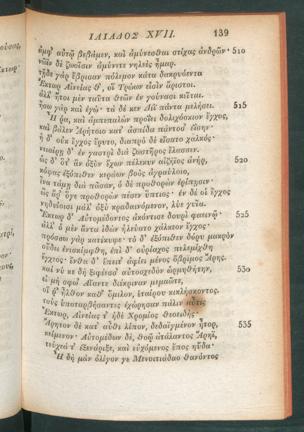 ΙΛΙΑΔΟΣ XVII. 139
ἀμφ' αὐτῷ βεβάμεν, καὶ ἀμύνεσθαι στίχας ἀνδρῶν· 510
νῶϊν δὲ ζωοῖσιν ἀμύνετε νηλεὲς ἦμαρ.
τῇδε γὰρ ἔβρισαν πόλεμον κάτα δακρυόεντα
Ἕκτωρ Αἰνείας θ', οἳ Τρώων εἰσὶν ἄριστοι.
ἀλλ' ἤτοι μὲν ταῦτα θεῶν ἐν γούνασι κεῖται.
ἥσω γὰρ καὶ ἐγώ· τὰ δέ κεν Διῒ πάντα μελήσει. 515
Ἦ ῥα, καὶ ἀμπεπαλὼν προΐει δολιχόσκιον ἔγχος,
καὶ βάλεν Ἀρήτοιο κατ' ἀσπίδα πάντοσ' ἐΐσην·
ἡ δ' οὐκ ἔγχος ἔρυτο, διαπρὸ δὲ εἴσατο χαλκός·
νειαίρῃ δ' ἐν γαστρὶ διὰ ζωστῆρος ἔλασσεν.
ὡς δ' ὅτ' ἂν ὀξὺν ἔχων πέλεκυν αἰζήϊος ἀνήρ, 520
κόψας ἐξόπιθεν κεράων βοὸς ἀγραύλοιο,
ἶνα τάμῃ διὰ πᾶσαν, ὁ δὲ προθορὼν ἐρίπῃσιν·
ὣς ἄρ' ὅγε προθορὼν πέσεν ὕπτιος· ἐν δέ οἱ ἔγχος
νηδυίοισι μάλ' ὀξὺ κραδαινόμενον, λύε γυῖα.
Ἕκτωρ δ' Αὐτομέδοντος ἀκόντισε δουρὶ φαεινῷ· 525
ἀλλ' ὁ μὲν ἄντα ἰδὼν ἠλεύατο χάλκεον ἔγχος·
πρόσσω γὰρ κατέκυψε· τὸ δ' ἐξόπιθεν δόρυ μακρὸν
οὔδει ἐνισκίμφθη, ἐπὶ δ' οὐρίαχος πελεμίχθη
ἔγχεος· ἔνθα δ' ἔπειτ' ἀφίει μένος ὄβριμος Ἄρης.
καί νύ κε δὴ ξιφέεσσ' αὐτοσχεδὸν ὡρμηθήτην, 530
εἰ μή σφω' Αἴαντε διέκριναν μεμαῶτε,
οἵ ῥ' ἦλθον καθ' ὅμιλον, ἑταίρου κικλήσκοντος.
τοὺς ὑποταρβήσαντες ἐχώρησαν πάλιν αὖτις
Ἕκτωρ, Αἰνείας τ' ἠδὲ Χρομίος θεοειδής·
Ἄρητον δὲ κατ' αὖθι λίπον, δεδαϊγμένον ἦτορ, 535
κείμενον· Αὐτομέδων δέ, θοῷ ἀτάλαντος Ἄρηϊ,
τεύχεά τ' ἐξενάριξε, καὶ εὐχόμενος ἔπος ηὔδα·
Ἦ δὴ μὰν ὀλίγον γε Μενοιτιάδαο θανόντος